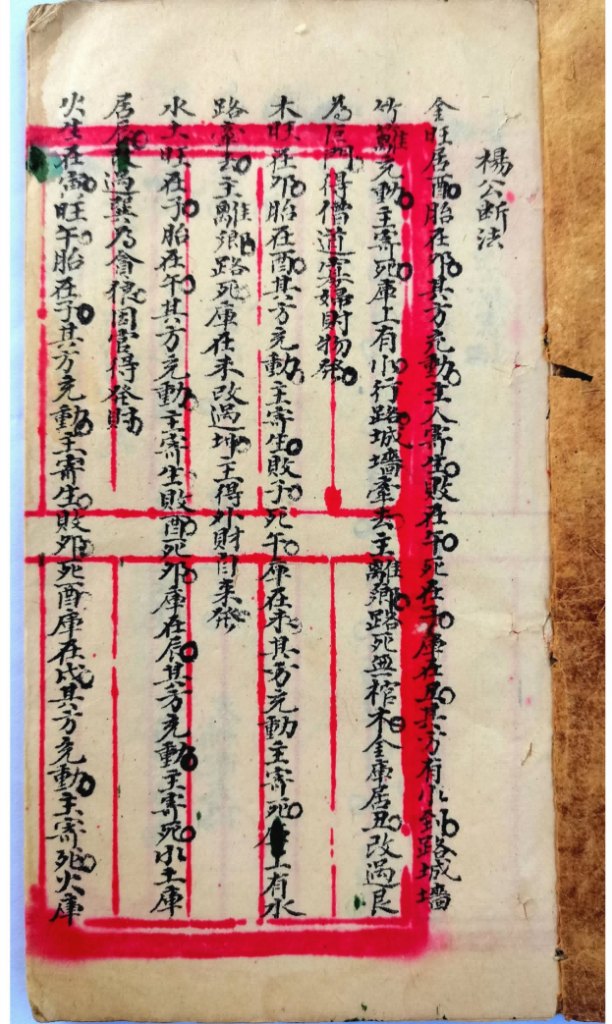 楊公断法
金旺居酉胎在卯其方充動主人寄生敗在午死在子庫在丑其方有水到路城墻
竹籬充動主寄死庫上有水行路城墻牽去主離鄉路死無棺木金庫居丑改過艮
為得借道寡婦財物發
木旺在卯胎在酉其方充動主寄生敗子死午庫在未其方充動主寄死上有水
路牽去主離鄉路死庫在未改過坤主得外財自来發
水土旺在子胎在午其方充動主寄生敗酉死卯庫在辰其方充動主寄死水土庫
居辰改過巽乃會猿因官得發財
火生在寅旺午胎在子其方充動主寄生敗卯死酉庫在戌其方充動主寄死火庫